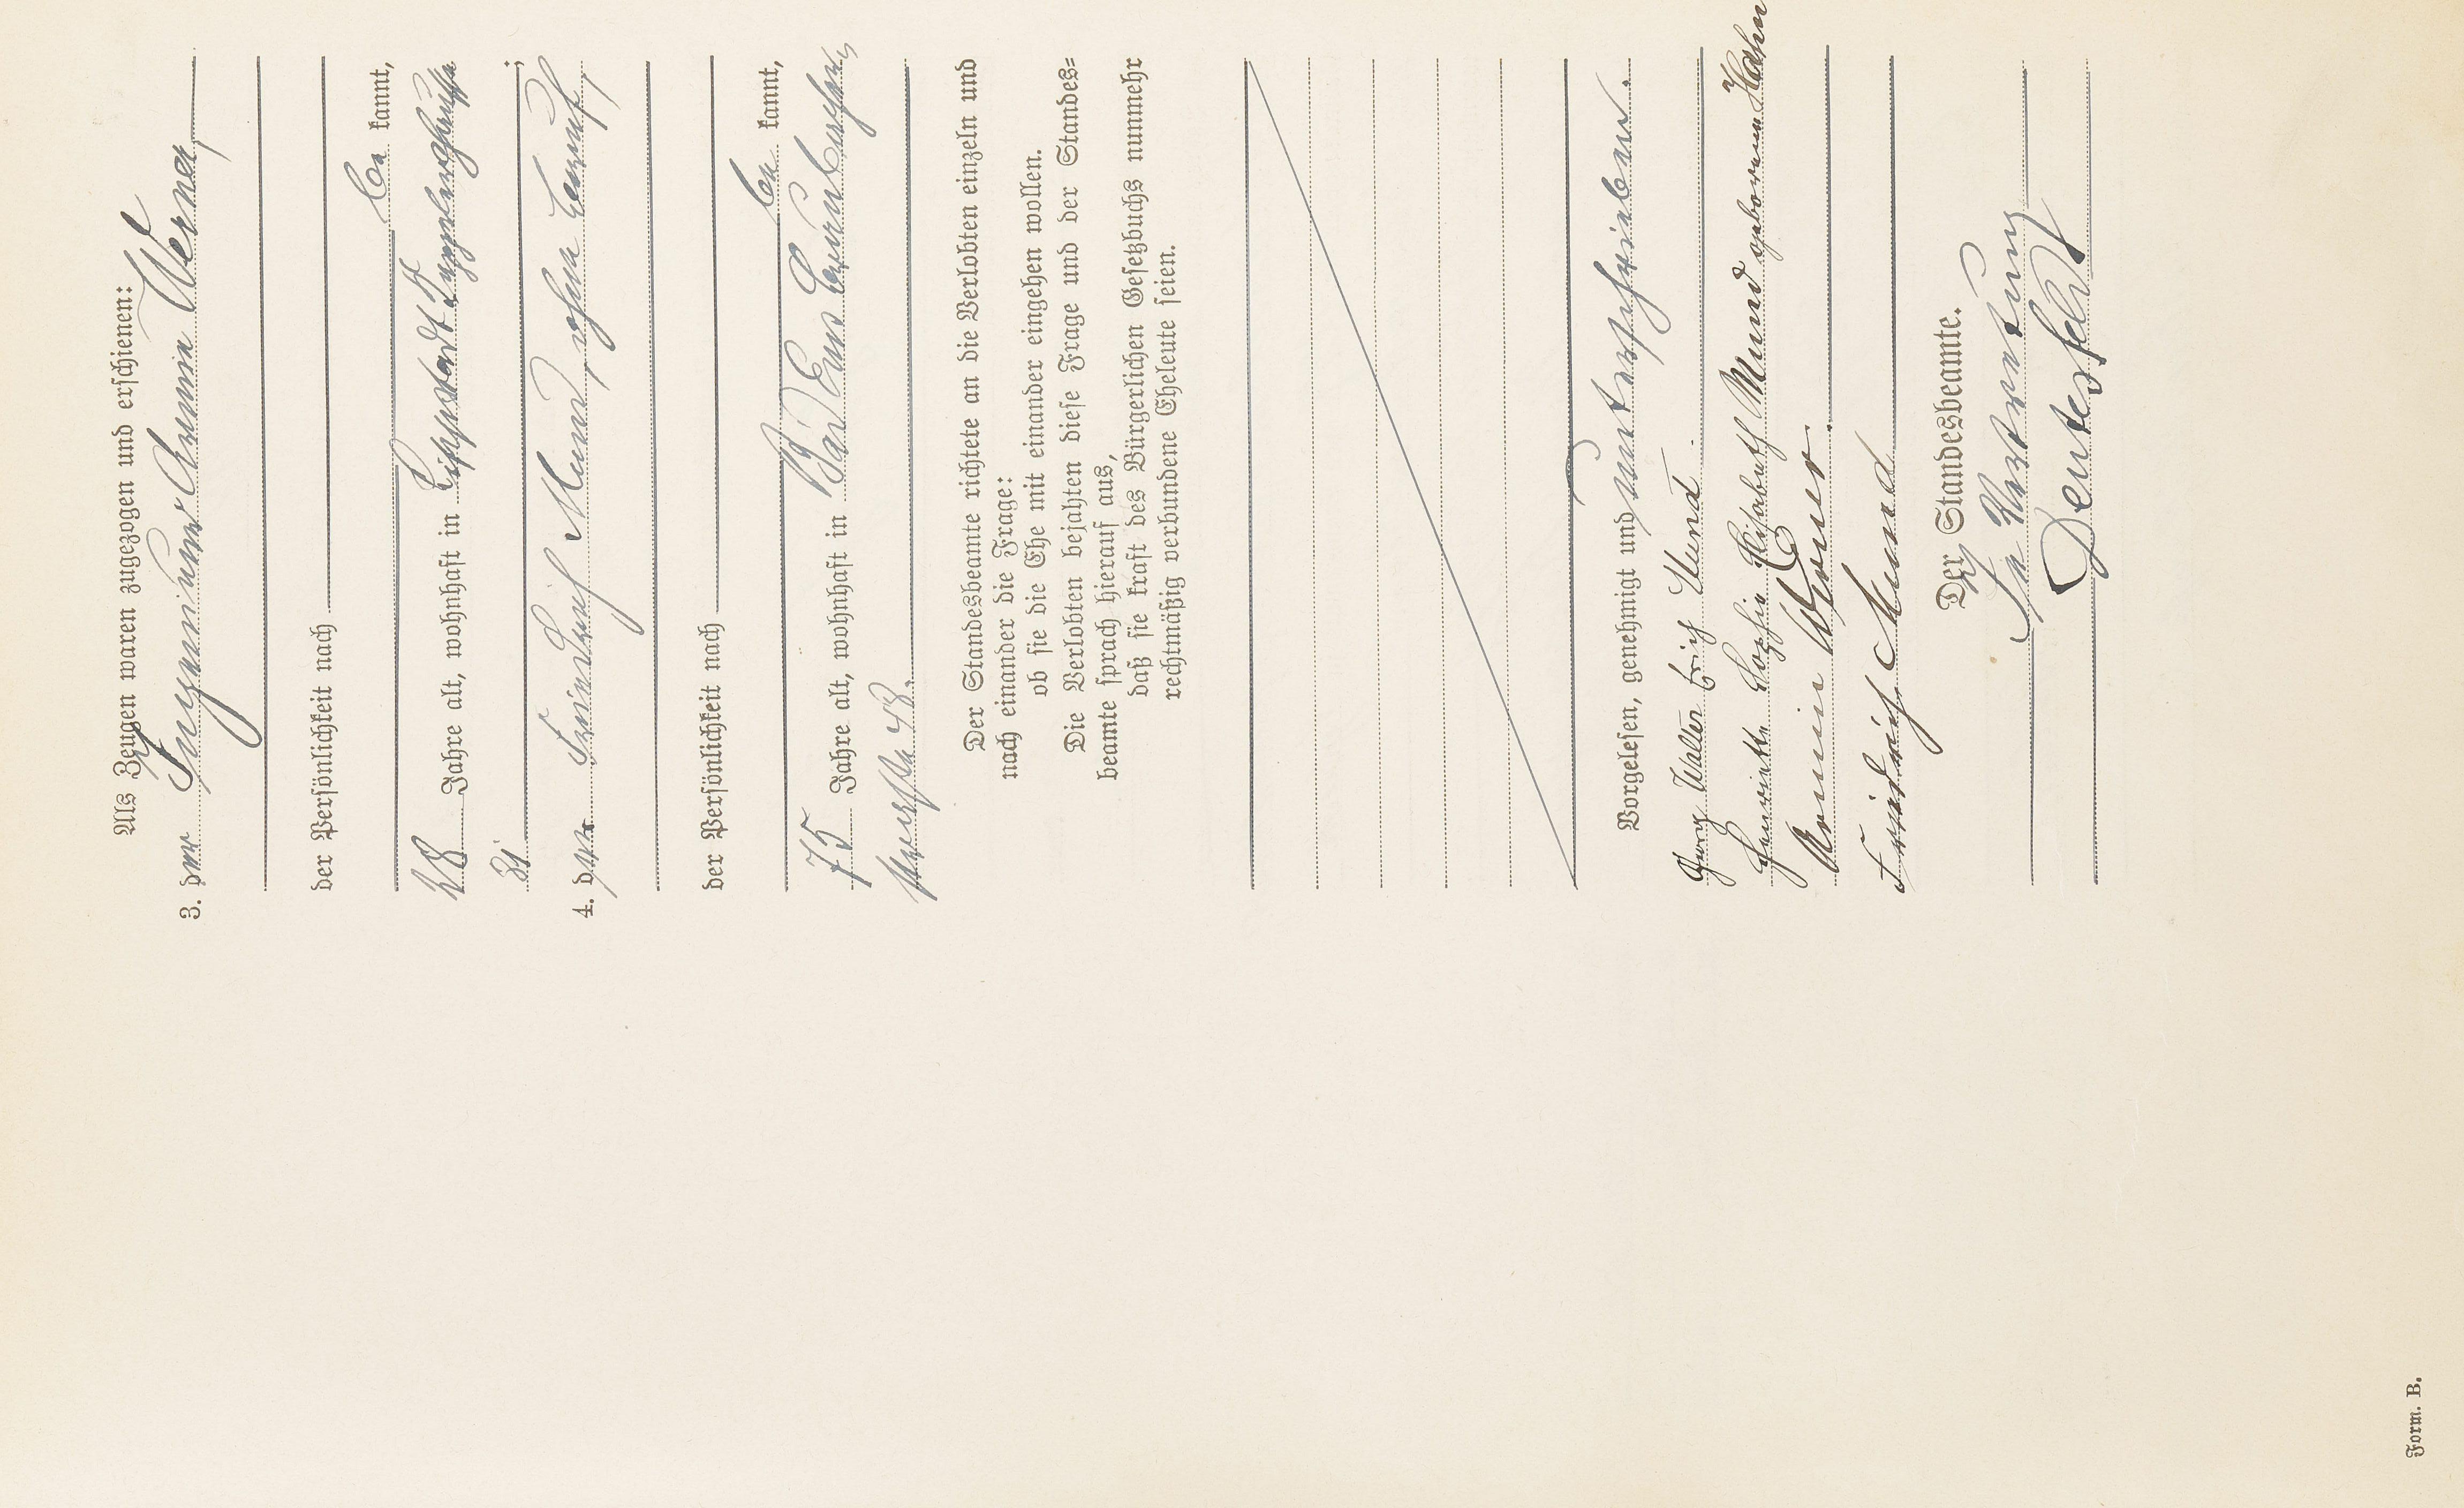 Als Zeugen waren zugezogen und erschienen:
3. der Ingenieur Armin Werner,
der Persönlichkeit nach
be kannt,
28 Jahre alt, wohnhaft in Lippstadt
31 ;
4. der Friedrich Mund, ohne Beruf,
der Persönlichkeit nach
be kannt,
75 Jahre alt, wohnhaft in Bad
48.
Der Standesbeamte richtete an die Verlobten einzeln und
nach einander die Frage:
ob sie die Ehe mit einander eingehen wollen.
Die Verlobten bejahten diese Frage und der Standes=
beamte sprach hierauf aus,
daß sie kraft des Bürgerlichen Gesetzbuchs nunmehr
rechtmäßig verbundene Eheleute seien.
Vorgelesen, genehmigt und unterschrieben.
Georg Walter Erich Mund
Henriette Sophie Elisabeth Mund geborene Hahn
Armin Werner.
Friedrich Mund
Der Standesbeamte.
In Vertretung
Form. B.